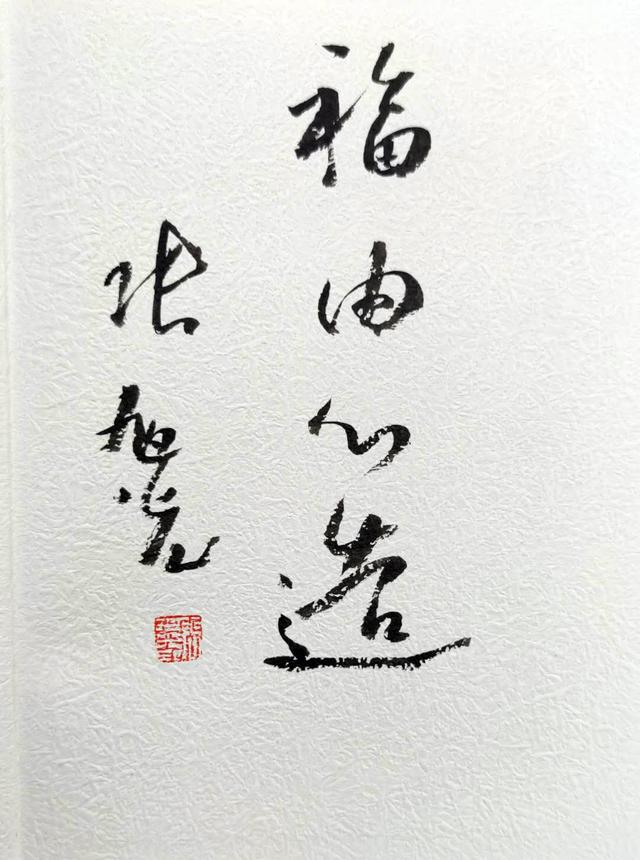 福由心造
张旭光